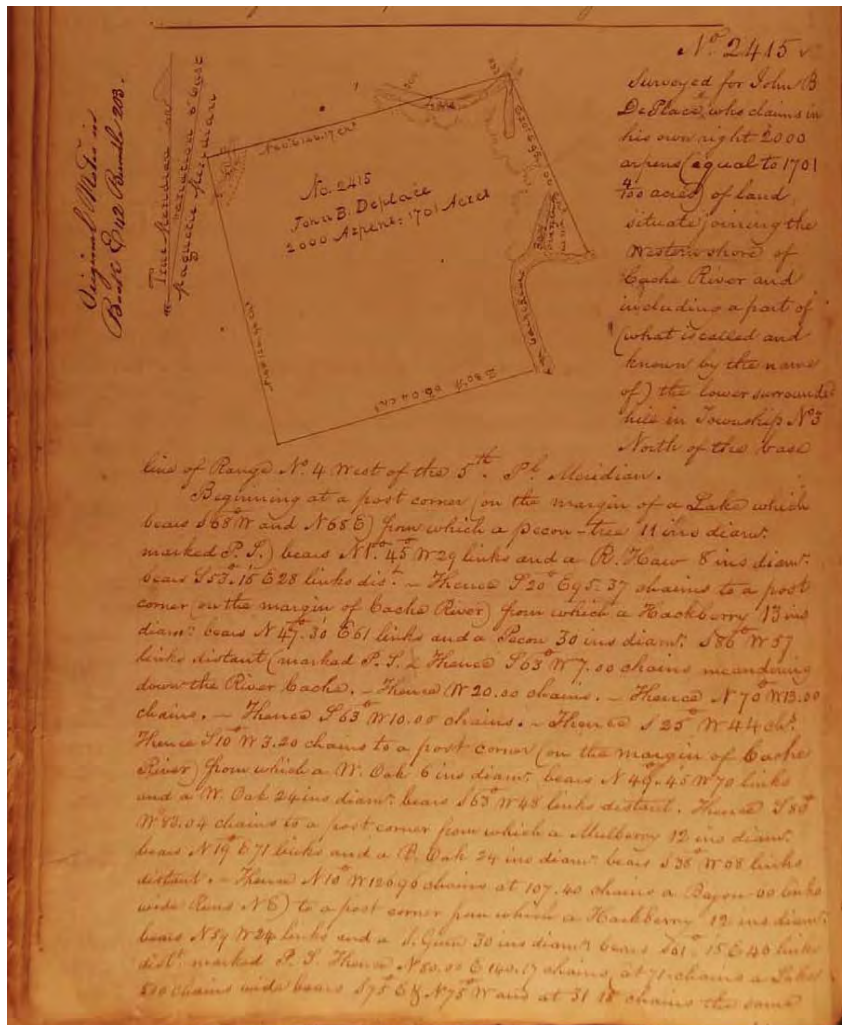 No. 2415
Surveyed for John B
DePlace who claims in
his own right 2000
arpens (equal to 1701
4/100 acres) of land
situate joining the
Western shore of
Cache River and
including a part of
(what is called and
known by the name
of) the lower surrounded
hill in Township No 3
North of the base
line of Range No. 4 West of the 5th Pl. Meridian.
Original Notes in
Book E 42 Bundle 203.
True Meridian
variation 8° East
Magnetic Meridian
Lake
No. 2415
John B. Deplace
2000 Arpens = 1701 Acres
Beginning at a post corner (on the margin of a Lake which
bears S68°W and N68E) from which a pecon-tree 11 ins diamr.
marked P.S.) bears N1°.45 W29 links and a R. Haw 8 ins diamr.
bears S53°.15 E28 links dist. - Thence S20°E95.37 chains to a post
corner (on the margin of Cache River) from which a Hackberry 13 ins
diamr. bears N47°.30 E61 links and a Pecon 30 ins diamr. S86°W57
links distant (marked P.S. Thence S63°W7.00 chains meandering
down the River Cache. - Thence W20.00 chains. - Thence N70°W13.00
chains. - Thence S63°W10.00 chains. - Thence S25°W44 chs.
Thence S10°W3.20 chains to a post corner (on the margin of Cache
River) from which a W. Oak 6 ins diamr. bears N49°.45 W70 links
and a W. Oak 24 ins diamr. bears S63°W48 links distant. Thence S80°
W83.04 chains to a post corner from which a Mulberry 12 ins diamr.
bears N19°E71 links and a P. Oak 24 ins diamr. bears S38°W08 links
distant. - Thence N10°W120.90 chains at 107.40 chains a Bayou 00 links
wide Runs N E) to a post corner from which a Hackberry 12 ins diamr.
bears N59 W24 links and a S. Gum 30 ins diamr. bears S61°.15 E40 links
dist. marked P.S. Thence N80.00 E140.17 chains, at 71 chains a Lake
chains wide bears S75°E & N75°W and at 31 15 chains the same